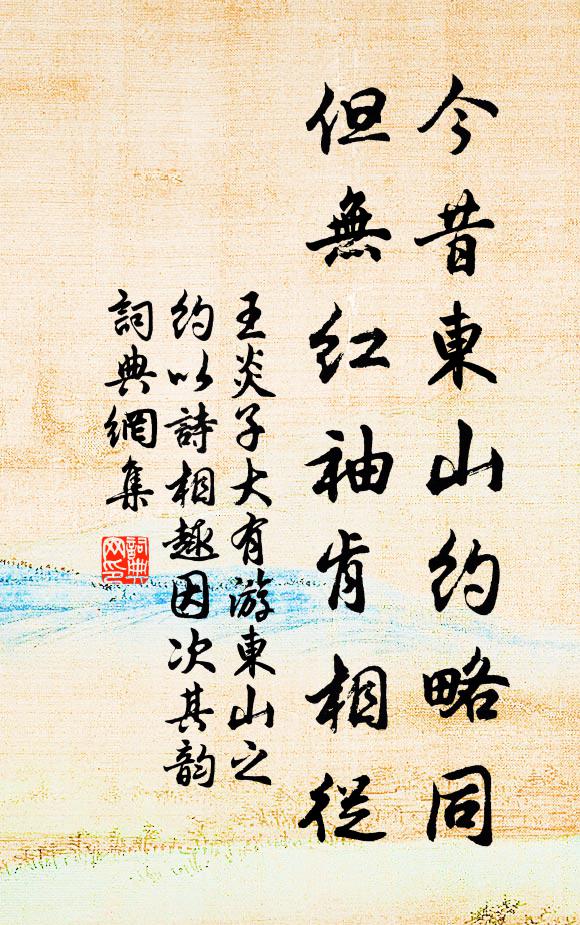 今昔東山约略同
但無红袖肯相從
王炎子大有游東山之
约以詩相趣因次其韵
詞典網集
詞典
网印